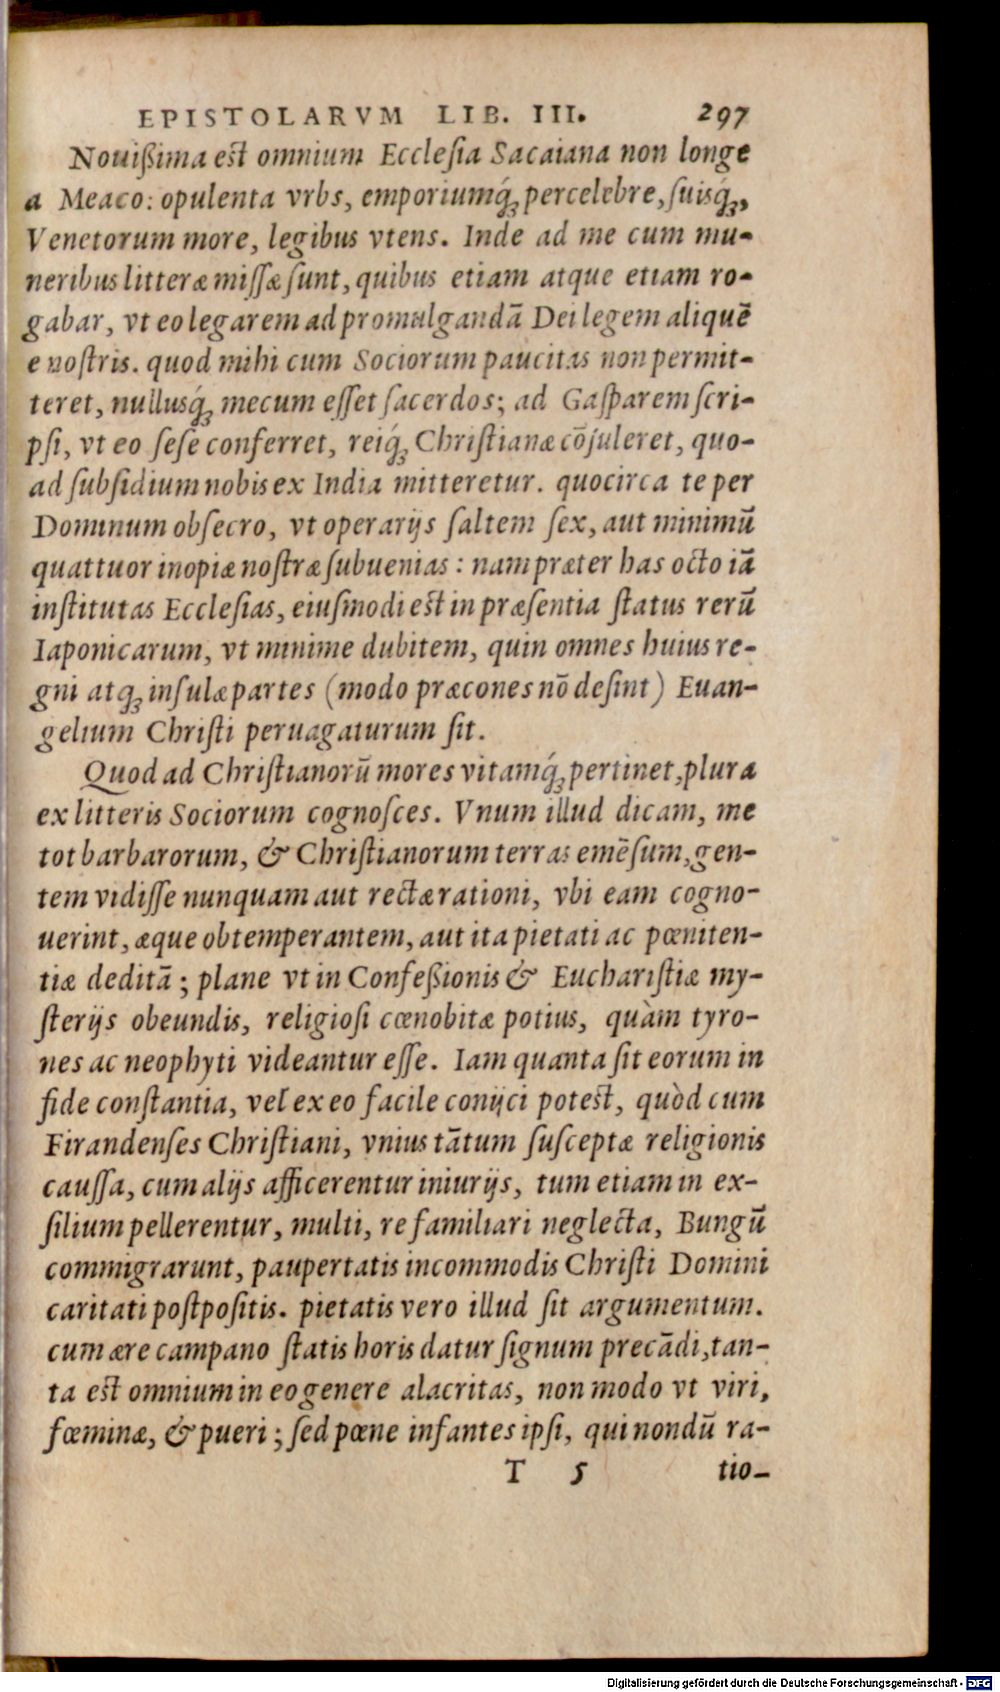 EPISTOLARVM LIB. III. 297
Nouißima est omnium Ecclesia Sacaiana non longe
a Meaco: opulenta vrbs, emporiumq́ꝫ percelebre, ſuisq́ꝫ,
Venetorum more, legibus vtens. Inde ad me cum mu-
neribus litteræ miſſæ ſunt, quibus etiam atque etiam ro-
gabar, vt eo legarem ad promulgandā Dei legem aliquē
e noſtris. quod mihi cum Sociorum paucitas non permit-
teret, nullusq́ꝫ mecum eſſet ſacerdos; ad Gaſparem ſcri-
pſi, vt eo ſeſe conferret, reiq́ꝫ Chriſtianæ cōſuleret, quo-
ad ſubſidium nobis ex India mitteretur. quocirca te per
Dominum obſecro, vt operarijs ſaltem ſex, aut minimū
quattuor inopiæ noſtræ ſubuenias: nam præter has octo iā
inſtitutas Eccleſias, eiuſmodi est in præſentia ſtatus rerū
Iaponicarum, vt minime dubitem, quin omnes huius re-
gni atqꝫ inſulæ partes (modo præcones nō deſint) Euan-
gelium Chriſti peruagaturum ſit.
Quod ad Chriſtianorū mores vitamq́ꝫ pertinet, plura
ex litteris Sociorum cognoſces. Vnum illud dicam, me
tot barbarorum, & Chriſtianorum terras emēſum, gen-
tem vidiſſe nunquam aut rectæ rationi, vbi eam cogno-
uerint, æque obtemperantem, aut ita pietati ac pœniten-
tiæ deditā; plane vt in Confeßionis & Euchariſtiæ my-
ſterijs obeundis, religioſi cœnobitæ potius, quàm tyro-
nes ac neophyti videantur eſſe. Iam quanta ſit eorum in
fide conſtantia, vel ex eo facile conijci potest, quòd cum
Firandenſes Chriſtiani, vnius tātum ſuſceptæ religionis
cauſſa, cum alijs afficerentur iniurijs, tum etiam in ex-
ſilium pellerentur, multi, re familiari neglecta, Bungū
commigrarunt, paupertatis incommodis Chriſti Domini
caritati poſtpoſitis. pietatis vero illud ſit argumentum.
cum ære campano ſtatis horis datur ſignum precādi, tan-
ta est omnium in eo genere alacritas, non modo vt viri,
fœminæ, & pueri; ſed pœne infantes ipſi, qui nondū ra-
T 5 tio-
Digitalisierung gefördert durch die Deutsche Forschungsgemeinschaft - DFG